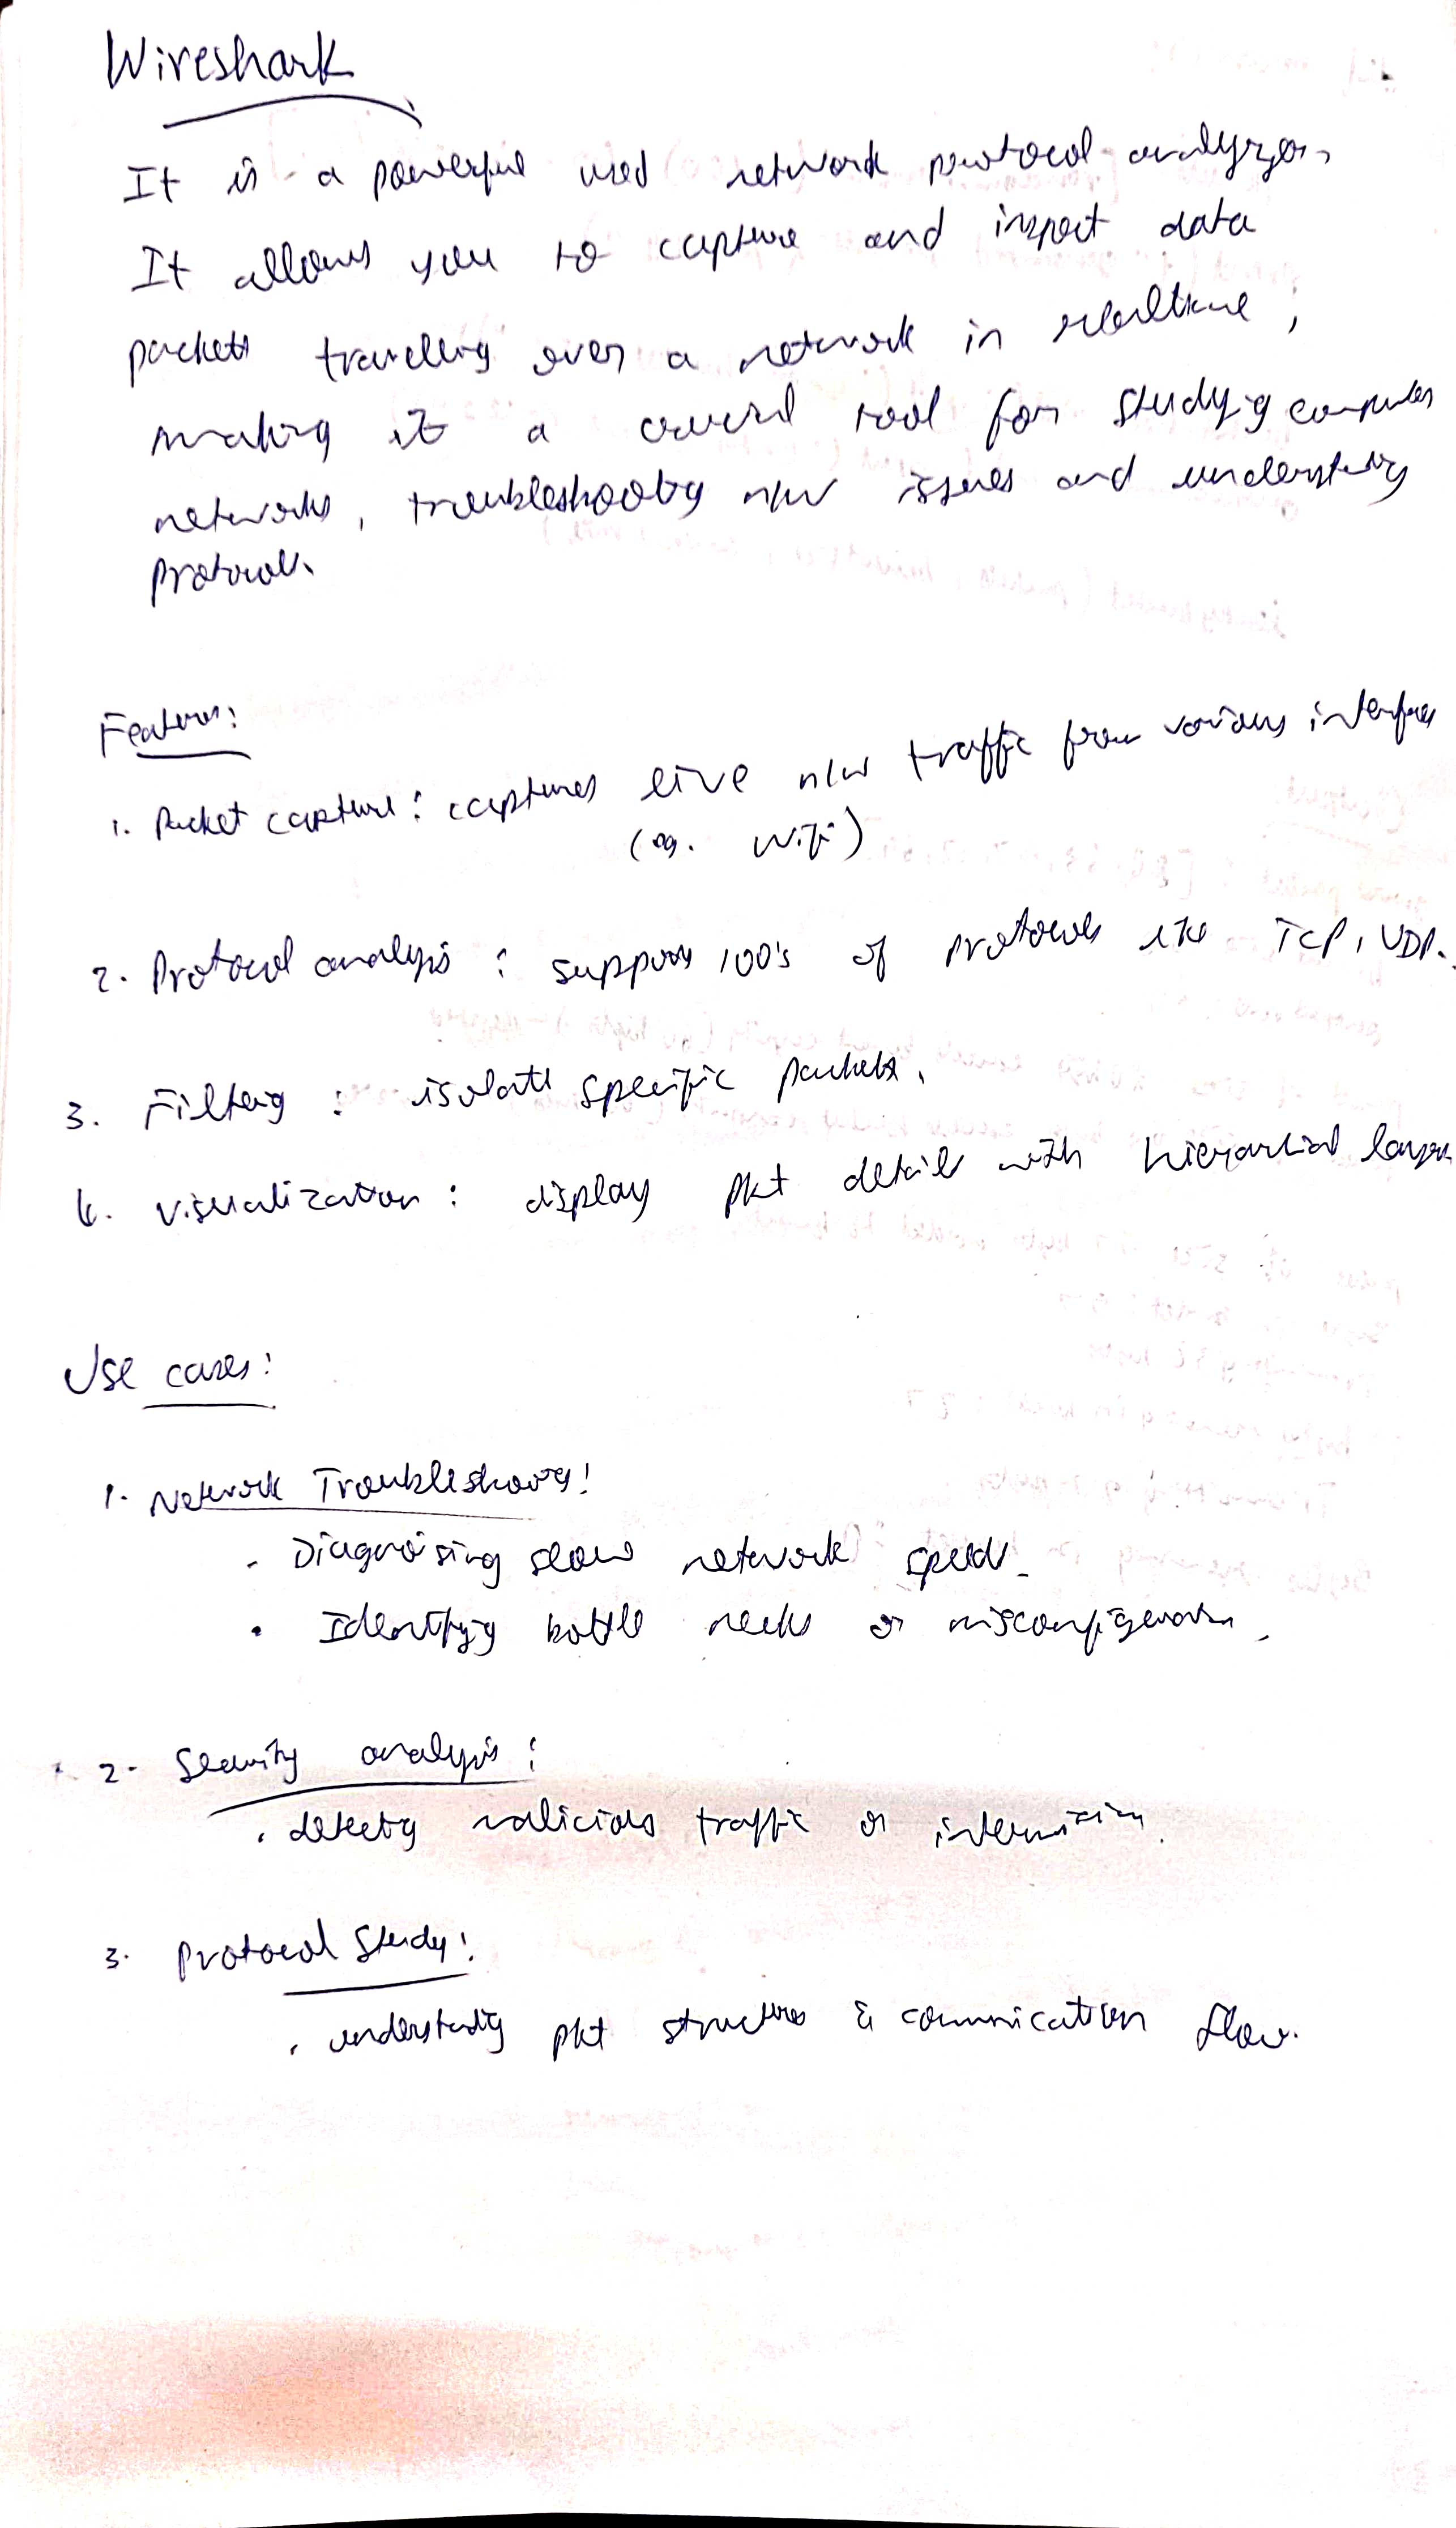 Wireshark
It is a powerful used network protocol analyzer.
It allows you to capture and inspect data
packets travelling over a network in realtime,
making it a crucial tool for studying computer
networks, troubleshooting n/w issues and understanding
protocols.
Features:
1. Packet capture: captures live n/w traffic from various interfaces
(eg. WiFi)
2. Protocol analysis : supports 100's of protocols like TCP, UDP.
3. Filtering : isolate specific packets.
4. Visualization : display pkt details with hierarchical layers
Use cases:
1. Network Troubleshooting:
- Diagnosing slow network speeds.
• Identifying bottle necks or misconfigurations.
2. Security analysis:
• detecting malicious traffic or
3. Protocol Study:
• understanding pkt structures & communication flow.